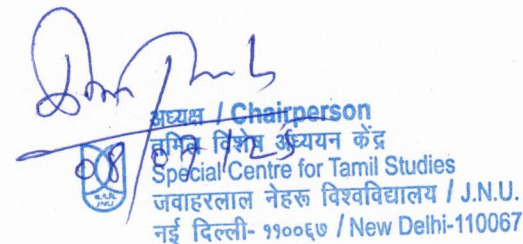 अध्यक्ष / Chairperson
तमिल विशेष अध्ययन केंद्र
08/07/25
Special Centre for Tamil Studies
जवाहरलाल नेहरू विश्वविद्यालय / J.N.U.
नई दिल्ली- ११००६७ / New Delhi-110067